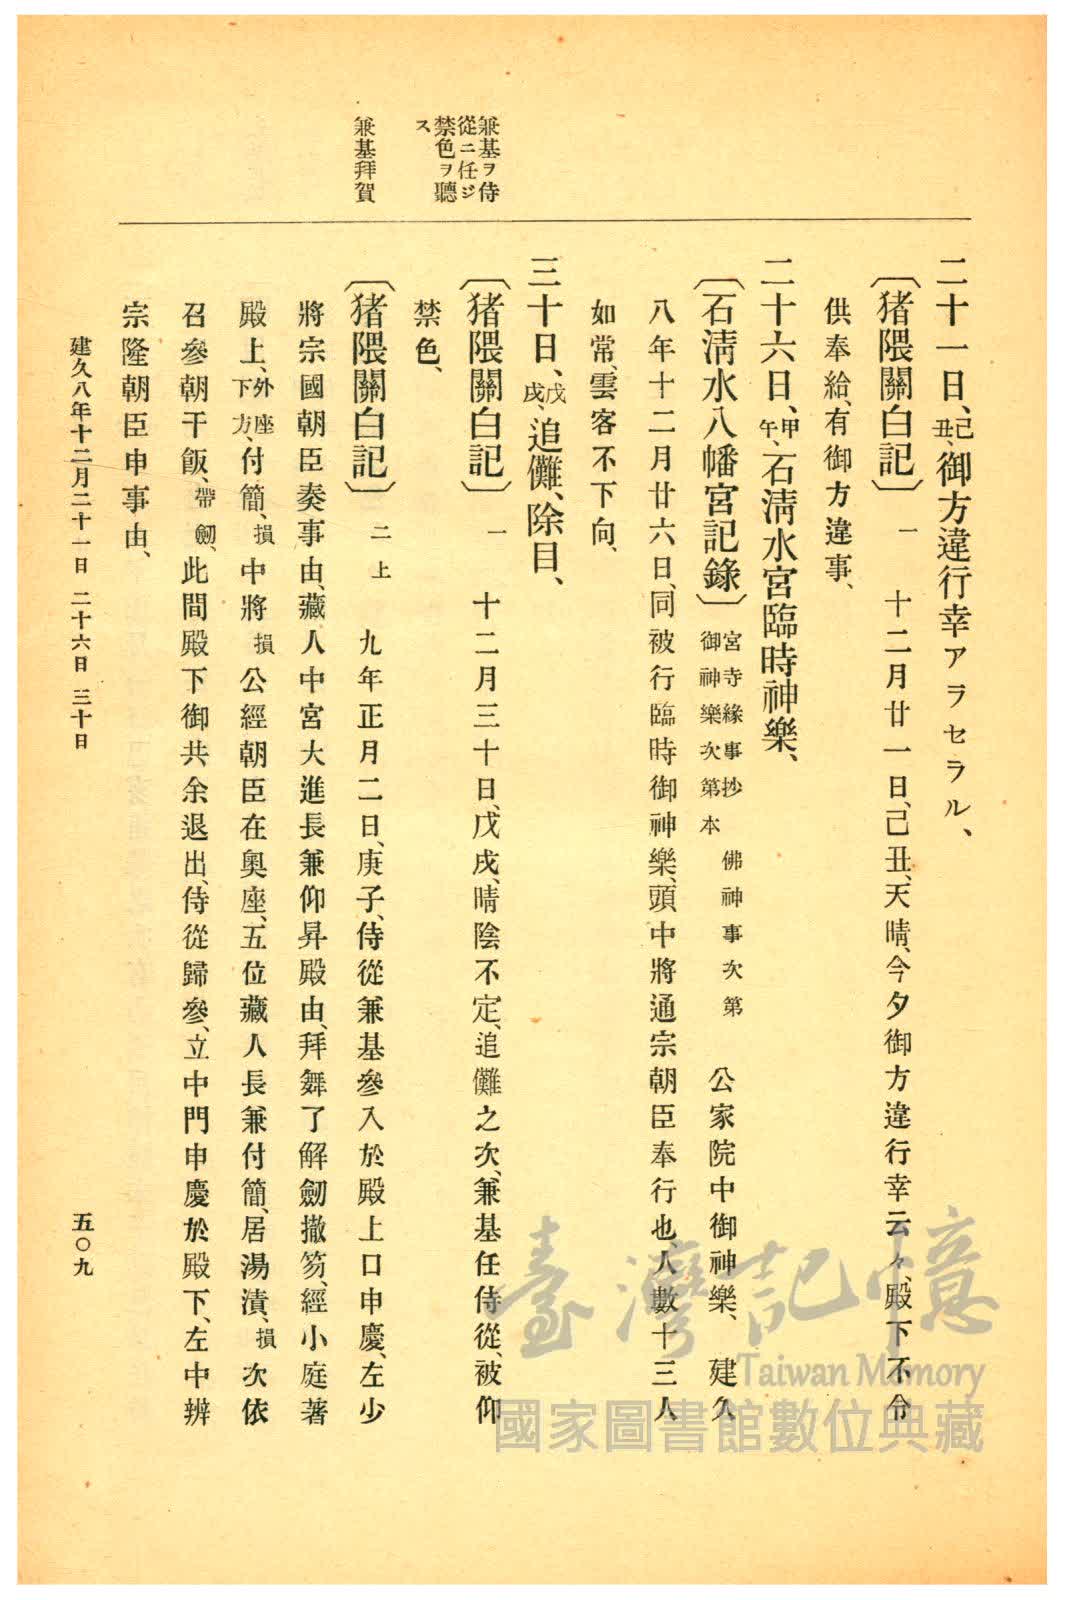 二十一日、己丑、御方違行幸アラセラル、
〔猪隈關白記〕 一 十二月廿一日、己丑、天晴、今夕御方違行幸云々、殿下不令
供奉給、有御方違事、
二十六日、甲午、石淸水宮臨時神樂、
〔石淸水八幡宮記錄〕 宮寺緣事抄 佛神事次第 御神樂次第本 公家院中御神樂、 建久
八年十二月廿六日、同被行臨時御神樂、頭中將通宗朝臣奉行也、人數十三人
如常、雲客不下向、
三十日、戊戌、追儺、除目、
〔猪隈關白記〕 一 十二月三十日、戊戌、晴陰不定、追儺之次、兼基任侍從、被仰
禁色、
兼基ヲ侍
從ニ任ジ
禁色ヲ聽
ス
〔猪隈關白記〕 二上 九年正月二日、庚子、侍從兼基參入於殿上口申慶、左少
兼基拜賀
將宗國朝臣奏事由、藏人中宮大進長兼仰昇殿由、拜舞了解劒撤笏、經小庭著
殿上、外座下方、付簡、損 中將損 公經朝臣在奧座、五位藏人長兼付簡、居湯漬、損 次依
召參朝干飯、帶劒、此間殿下御共余退出、侍從歸參、立中門申慶於殿下、左中辨
宗隆朝臣申事由、
建久八年十二月二十一日 二十六日 三十日
五〇九
臺灣記憶
Taiwan Memory
國家圖書館數位典藏